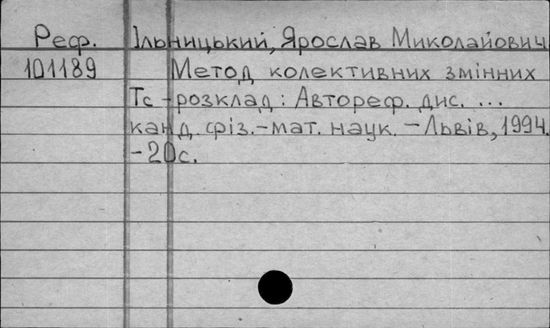 Реф. Ільницький, Ярослав Миколайович
101189 Метод колективних змінних
Тс - розклад : Автореф. дис. ...
канд. фіз.-мат. наук. - Львів, 1994.
- 20с.